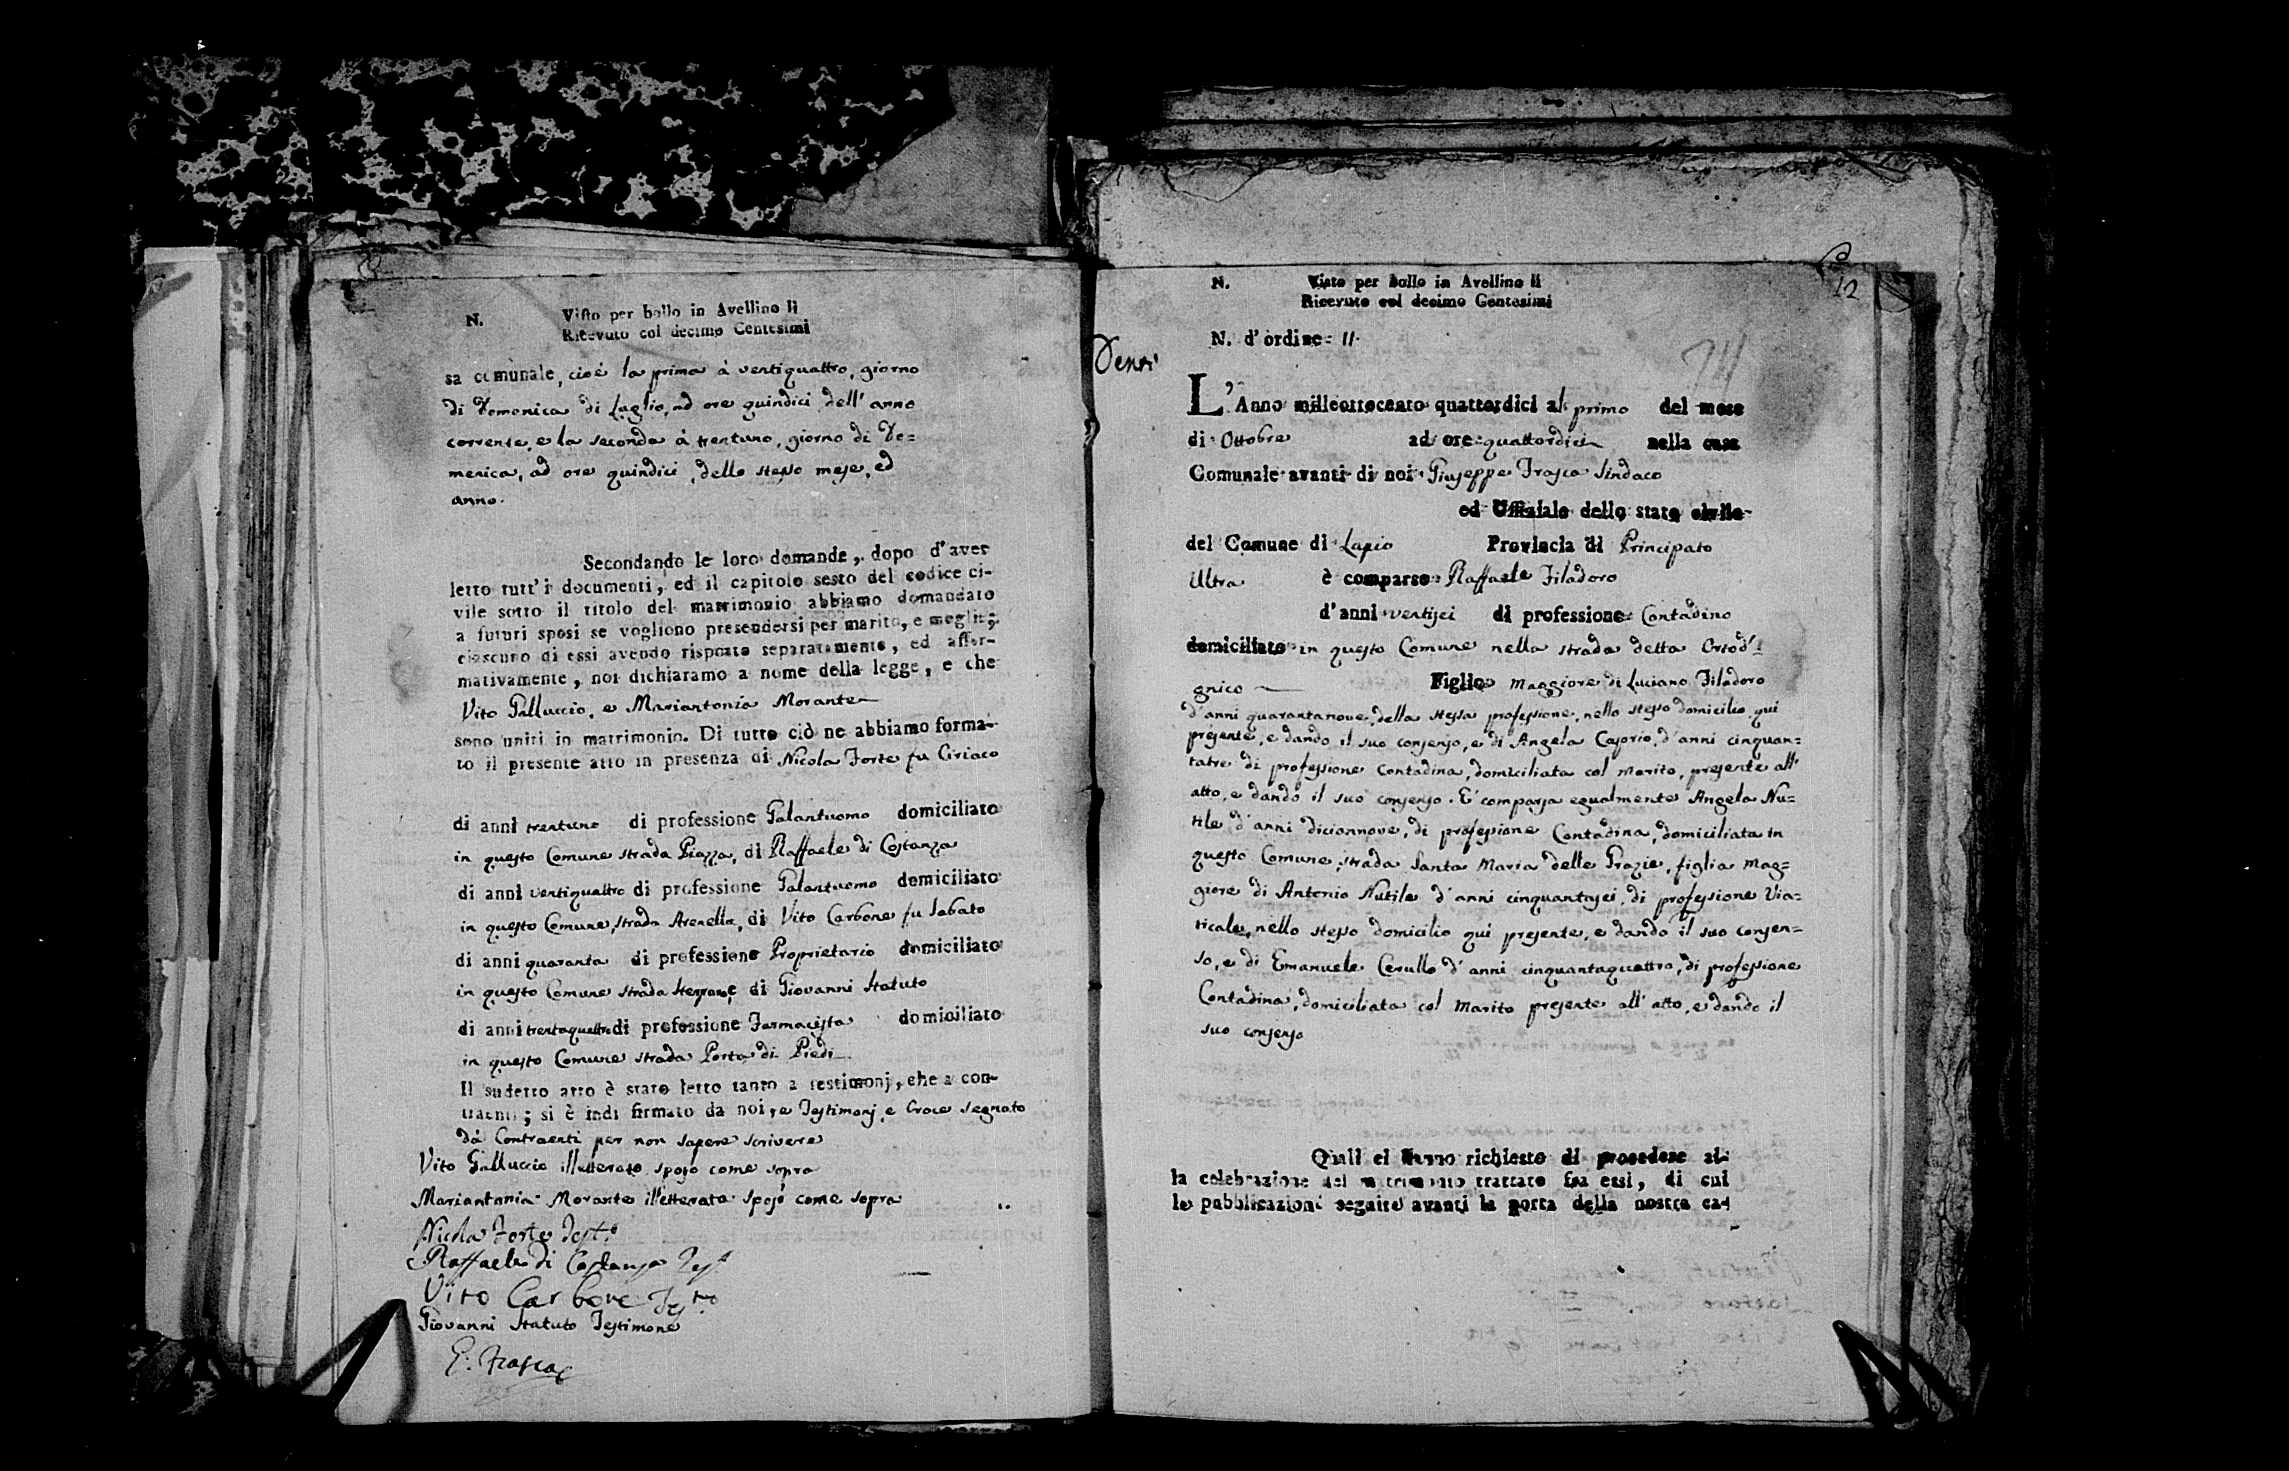 N. Visto per bollo in Avellino li
Ricevuto col decimo Centesimi
sa comunale, cioè la prima à ventiquattro, giorno
di Domenica di Luglio, ad ore quindici dell' anno
corrente, e la seconda à trentuno, giorno di Do=
menica, ad ore quindici, dello stesso mese, ed
anno.
Secondando le loro domande, dopo d'aver
letto tutt' i documenti, ed il capitolo sesto del codice ci-
vile sotto il titolo del matrimonio abbiamo domandato
a futuri sposi se vogliono presendersi per marito, e moglie;
ciascuno di essi avendo risposto separatamente, ed affer-
mativamente, noi dichiaramo a nome della legge, e che
Vito Galluccio, e Mariantonia Morante
sono uniti in matrimonio. Di tutto ciò ne abbiamo forma-
to il presente atto in presenza di Nicola Forte fu Ciriaco
di anni trentuno di professione Galantuomo domiciliato
in questo Comune strada Piazza, di Raffaele di Costanza
di anni ventiquattro di professione Galantuomo domiciliato
in questo Comune, strada Arenella, di Vito Carbone fu Sabato
di anni quaranta di professione Proprietario domiciliato
in questo Comune strada di Giovanni Statuto
di anni trentaquattro di professione Farmacista domiciliato
in questo Comune strada Porta di Piedi
Il sudetto atto è stato letto tanto a testimonj, che a con-
traenti; si è indi firmato da noi, e Testimonj, e Croce segnato
dà Contraenti per non sapere scrivere
Vito Galluccio illetterato sposo come sopra
Mariantonia Morante illetterata sposa come sopra
Nicola Forte Test.
Raffaele di Costanza Test.
Vito Carbone Testo
Giovanni Statuto Testimone
G. Frasca
12
N. Visto per bollo in Avellino li
Ricevuto col decimo Centesimi
N. d'ordine 11.
L'Anno milleottocento quattordici al primo del mese
di Ottobre ad ore quattordici nella casa
Comunale avanti di noi Giuseppe Frasca Sindaco
ed Uffiziale dello stato civile
del Comune di Lapio Provincia di Principato
Ultra è comparso Raffaele Filadoro
d'anni ventisei di professione Contadino
domiciliato in questo Comune nella strada detta Ortod'I
gnico Figlio maggiore di Luciano Filadoro
d'anni quarantanove, della stessa professione, nello stesso domicilio qui
presente, e dando il suo consenso, e di Angela Caporio, d'anni cinquan=
tatre di professione Contadina, domiciliata col marito, presente all'
atto, e dando il suo consenso. E' comparsa egualmente Angela Nu=
tile d'anni dicionnove, di professione Contadina, domiciliata in
questo Comune, strada Santa Maria delle Grazie, figlia mag=
giore di Antonio Nutile d'anni cinquantasei, di professione Via=
ticale, nello stesso domicilio qui presente, e dando il suo consen=
so, e di Emanuele Cerullo d'anni cinquantaquattro, di professione
Contadina, domiciliata col marito presente all' atto, e dando il
suo consenso
Quali ci hanno richiesto di procedere al-
la celebrazione del matrimonio trattato fra essi, di cui
le pubblicazioni seguite avanti la porta della nostra ca-